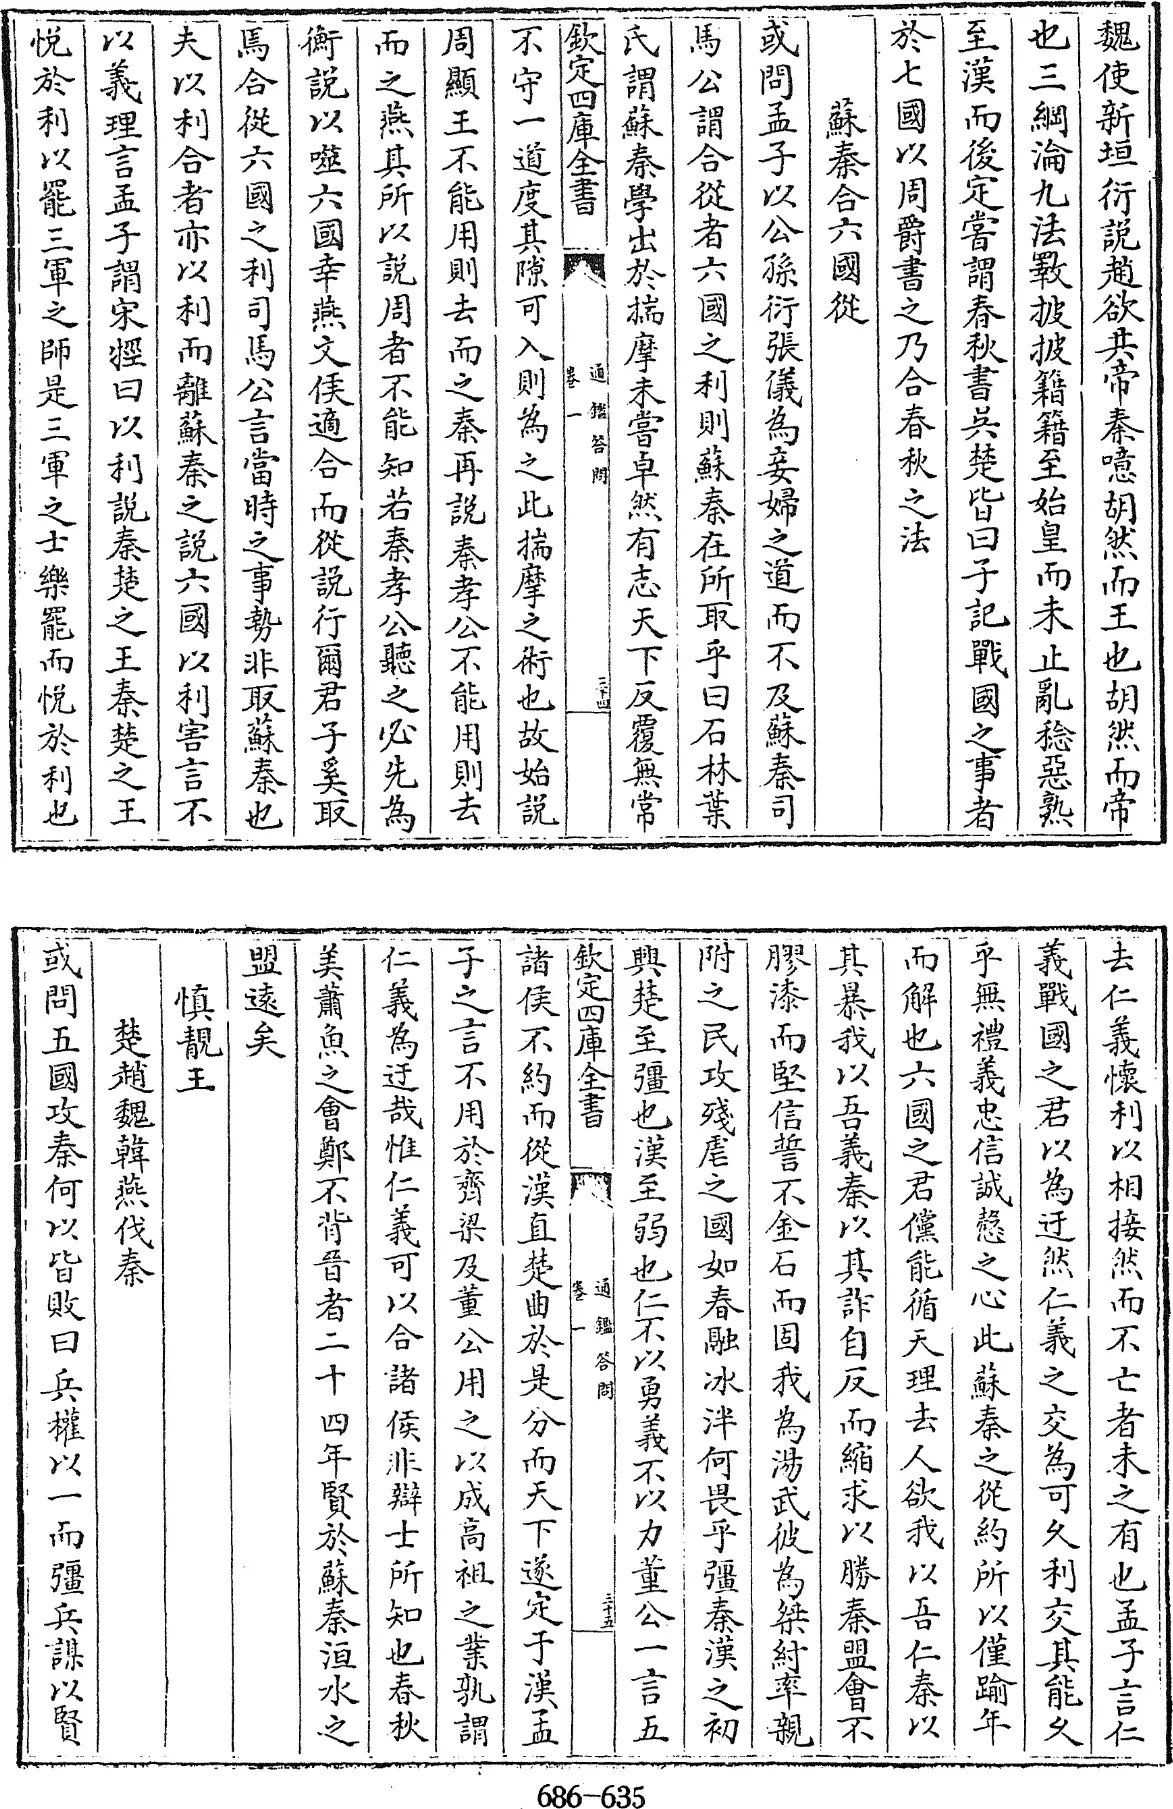 魏使新垣衍説趙欲共帝秦噫胡然而王也胡然而帝
也三綱淪九法斁披披籍籍至始皇而未止亂稔惡熟
至漢而後定嘗謂春秋書吳楚皆曰子記戰國之事者
於七國以周爵書之乃合春秋之法
蘇秦合六國從
或問孟子以公孫衍張儀為妾婦之道而不及蘇秦司
馬公謂合從者六國之利則蘇秦在所取乎曰石林葉
氏謂蘇秦學出於揣摩未嘗卓然有志天下反覆無常
欽定四庫全書
通鑑答問
卷一
三十四
不守一道度其隙可入則為之此揣摩之術也故始説
周顯王不能用則去而之秦再説秦孝公不能用則去
而之燕其所以説周者不能知若秦孝公聽之必先為
衡説以噬六國幸燕文侯適合而從説行爾君子奚取
焉合從六國之利司馬公言當時之事勢非取蘇秦也
夫以利合者亦以利而離蘇秦之説六國以利害言不
以義理言孟子謂宋牼曰以利説秦楚之王秦楚之王
悦於利以罷三軍之師是三軍之士樂罷而悦於利也
去仁義懷利以相接然而不亡者未之有也孟子言仁
義戰國之君以為迂然仁義之交為可久利交其能久
乎無禮義忠信誠慤之心此蘇秦之從約所以僅踰年
而解也六國之君儻能循天理去人欲我以吾仁秦以
其暴我以吾義秦以其詐自反而縮求以勝秦盟會不
膠漆而堅信誓不金石而固我為湯武彼為桀紂率親
附之民攻殘虐之國如春融冰泮何畏乎彊秦漢之初
興楚至彊也漢至弱也仁不以勇義不以力董公一言五
欽定四庫全書
通鑑答問
卷一
三十五
諸侯不約而從漢直楚曲於是分而天下遂定于漢孟
子之言不用於齊梁及董公用之以成高祖之業孰謂
仁義為迂哉惟仁義可以合諸侯非辯士所知也春秋
美蕭魚之會鄭不背晉者二十四年賢於蘇秦洹水之
盟遠矣
慎靚王
楚趙魏韓燕伐秦
或問五國攻秦何以皆敗曰兵權以一而彊兵謀以賢
686-635